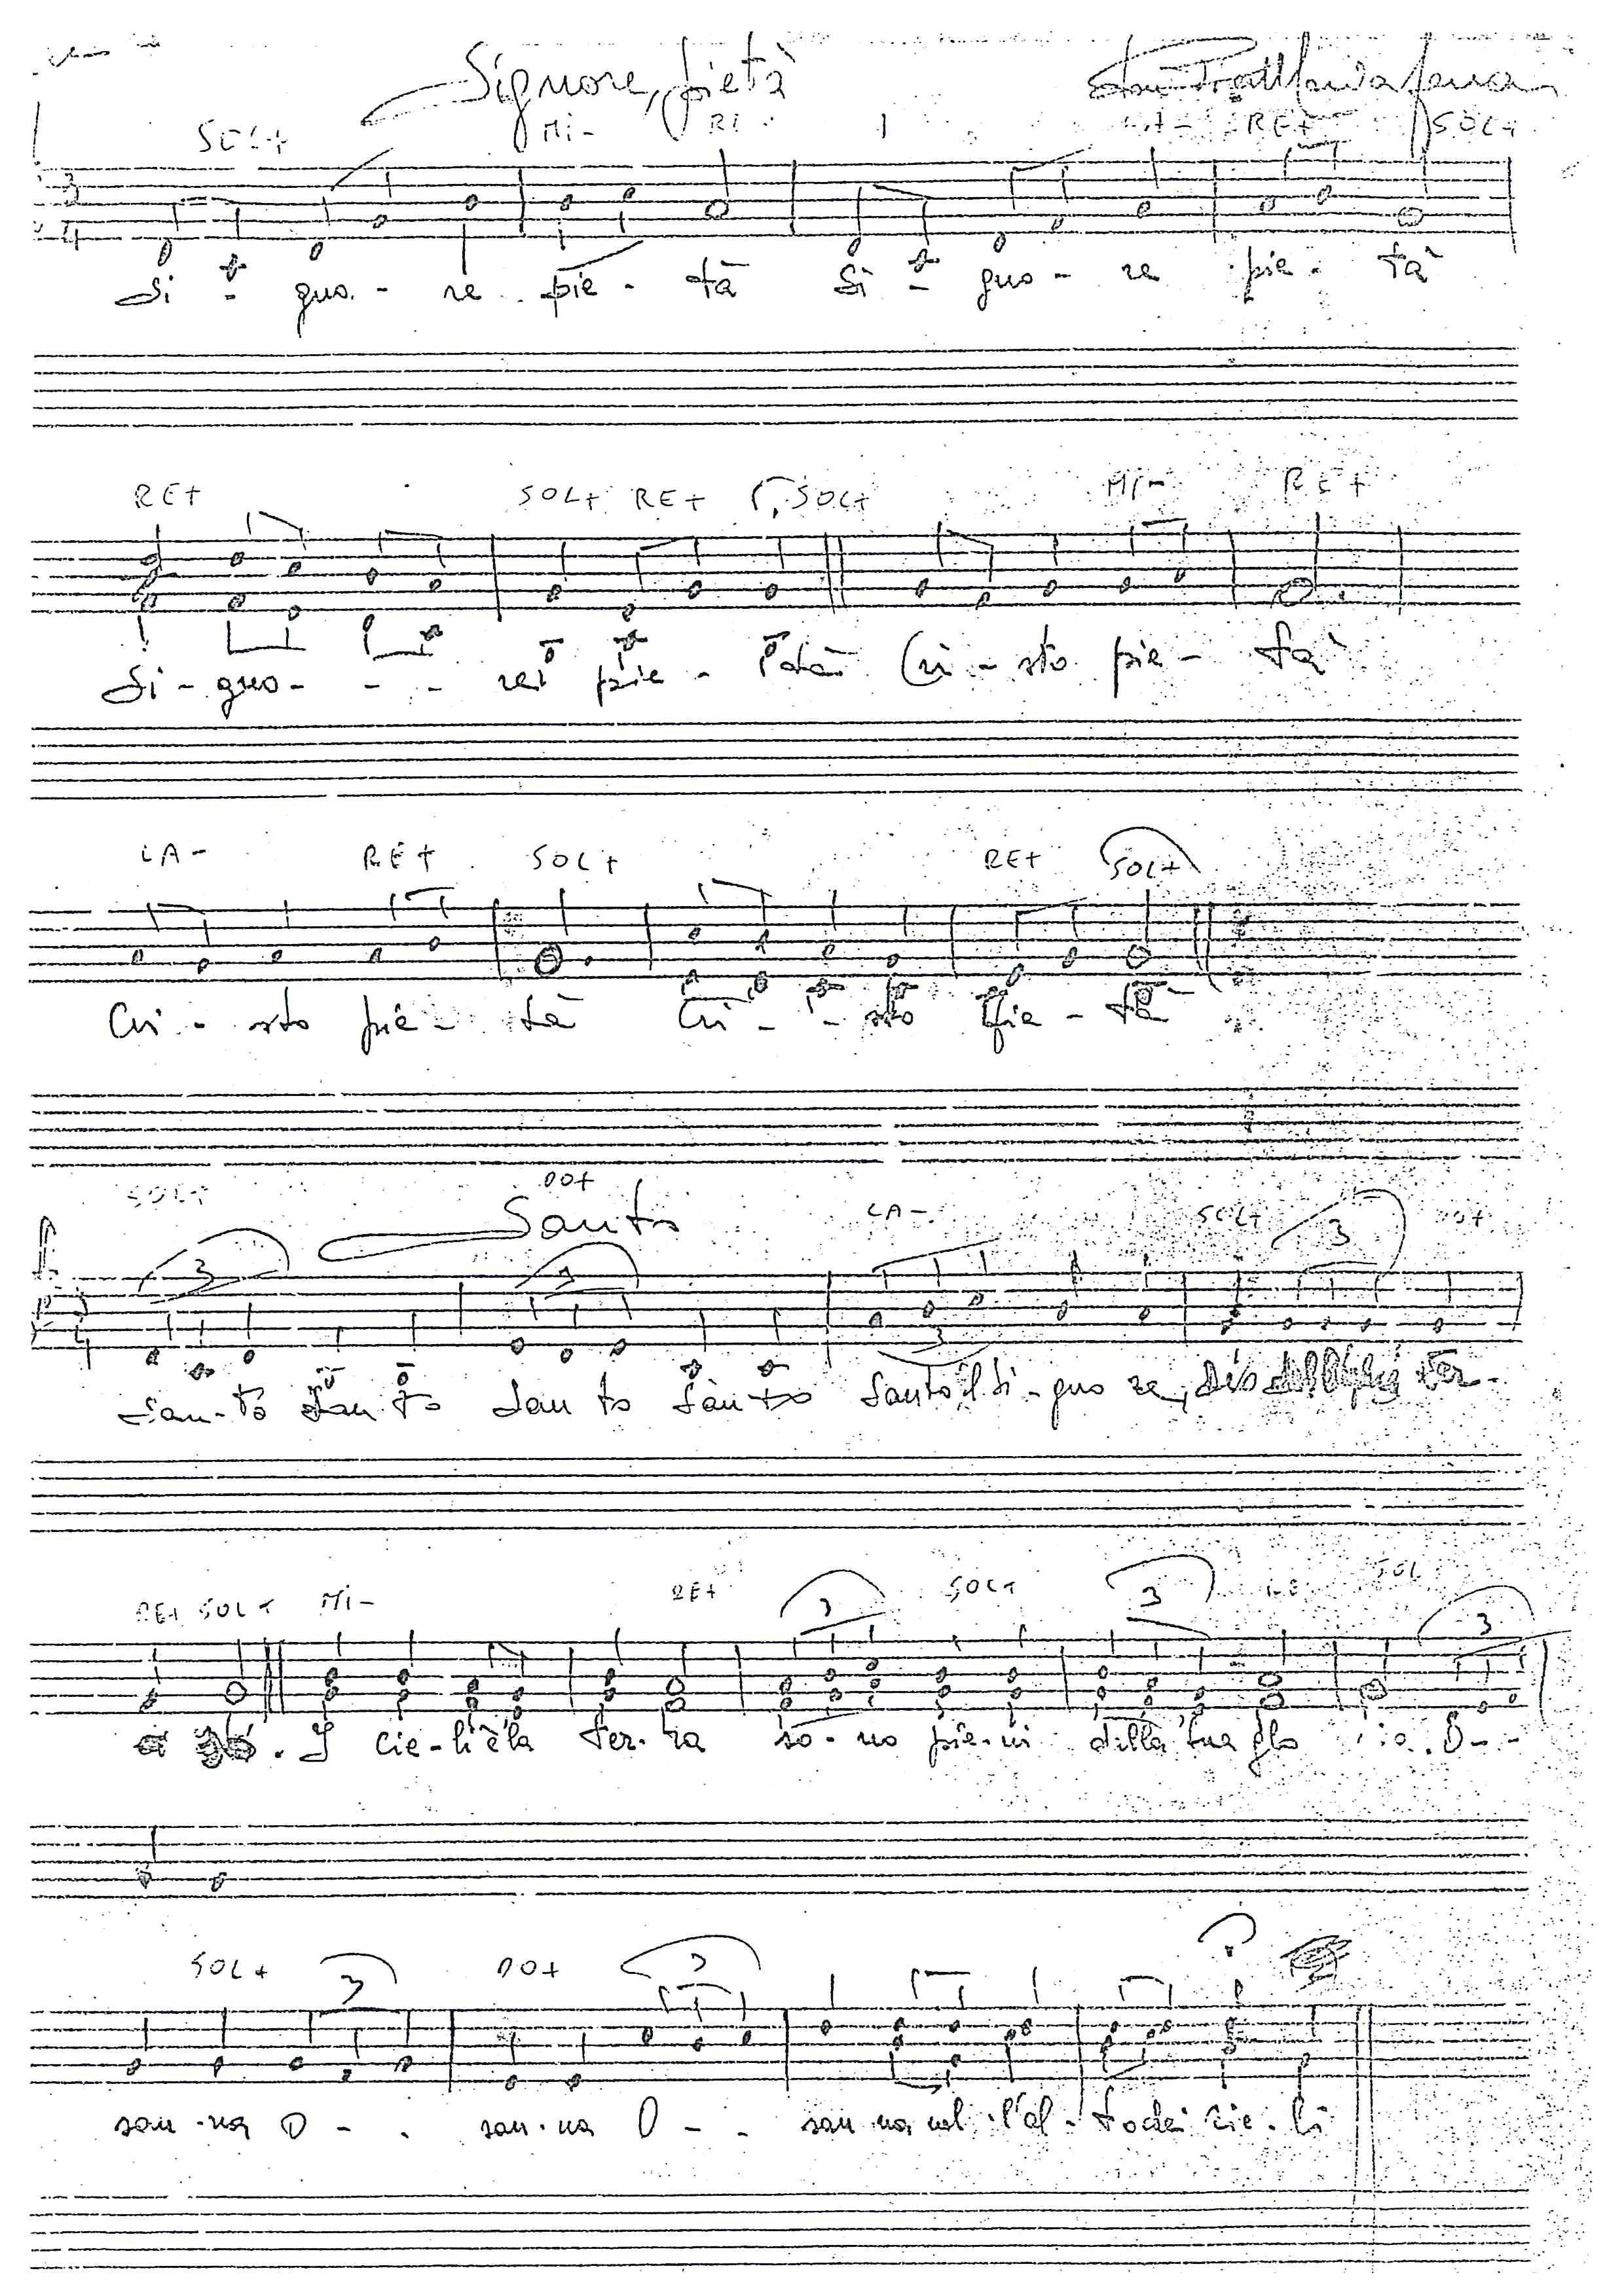 Signore, pietà
SOL+ Mi- RE+ SOL+
3
4
Si - gno - re pie - tà Si - gno - re pie - tà
RE+ SOL+ RE+ SOL+ MI- RE+
Si - gno - - - re pie - tà Cri - sto pie - tà
LA- RE+ SOL+ RE+ SOL+
Cri - sto pie - tà Cri - - sto pie - tà
SOL+ DO+ LA- SOL+ DO+
Santo
3 3 3 3
4
San - to San to San to San to Santo il Si - gno re, Dio
RE+ SOL+ Mi- RE+ SOL+ SOL
3 3 3
I cie - li e la ter - ra so - no pie - ni della tua glo ria. O - -
SOL+ DO+
3 3
san - na O - - san - na O - - san na nel - l'al - to dei cie - li